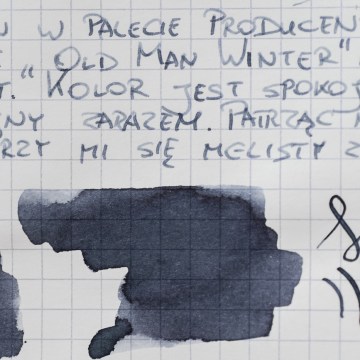 W PALECIE PRODUCEN
"OLD MAN WINTER"
T. "KOLOR JEST SPOKOJ
NY ZARAZEM. PATRZĄC N
RZY MI SIĘ MGLISTY Z